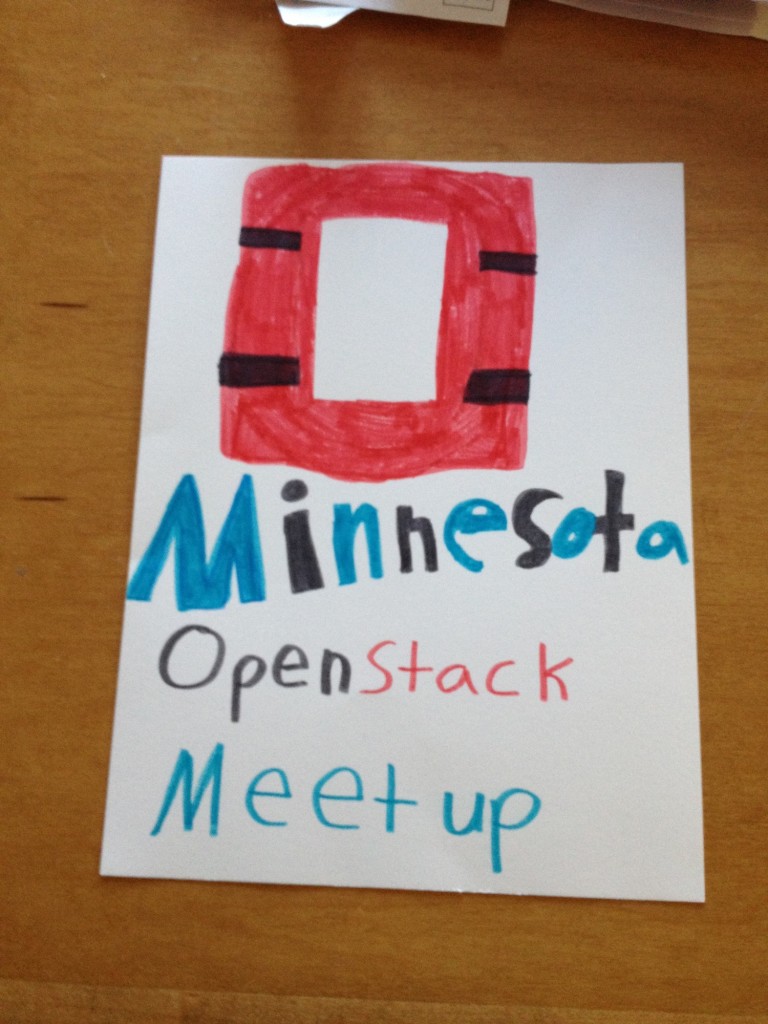 Minnesota
OpenStack
Meetup